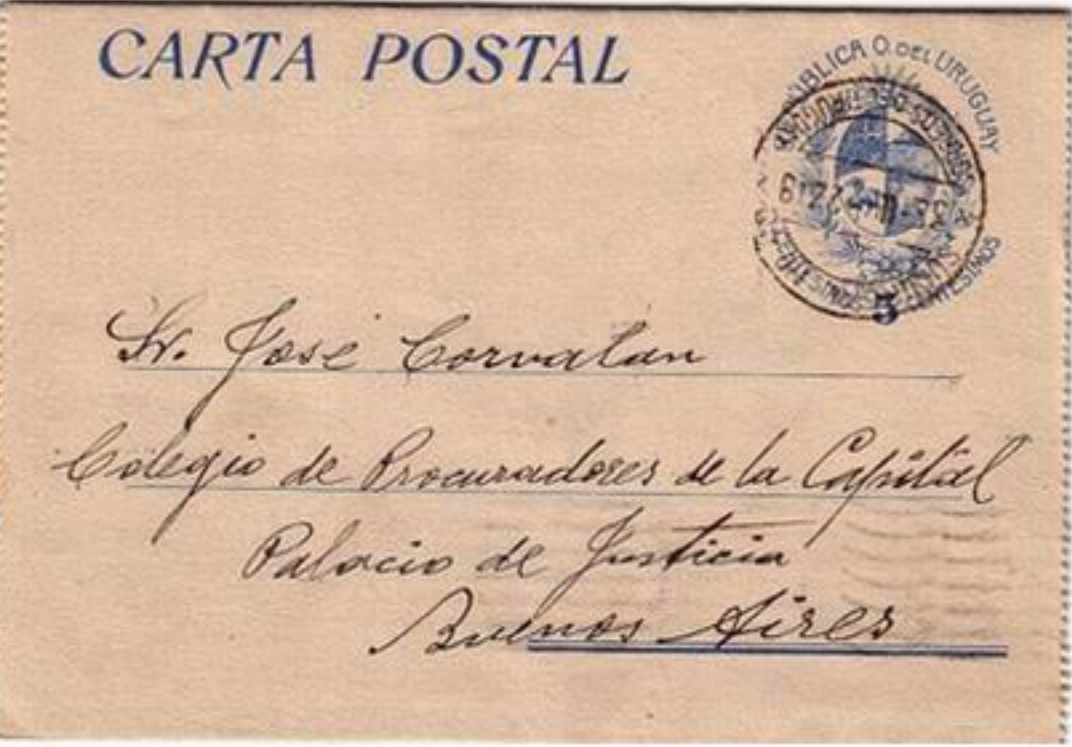 CARTA POSTAL
REPÚBLICA O. DEL URUGUAY
5
Sr. José Corvalan
Colegio de Procuradores de la Capital
Palacio de Justicia
Buenos Aires